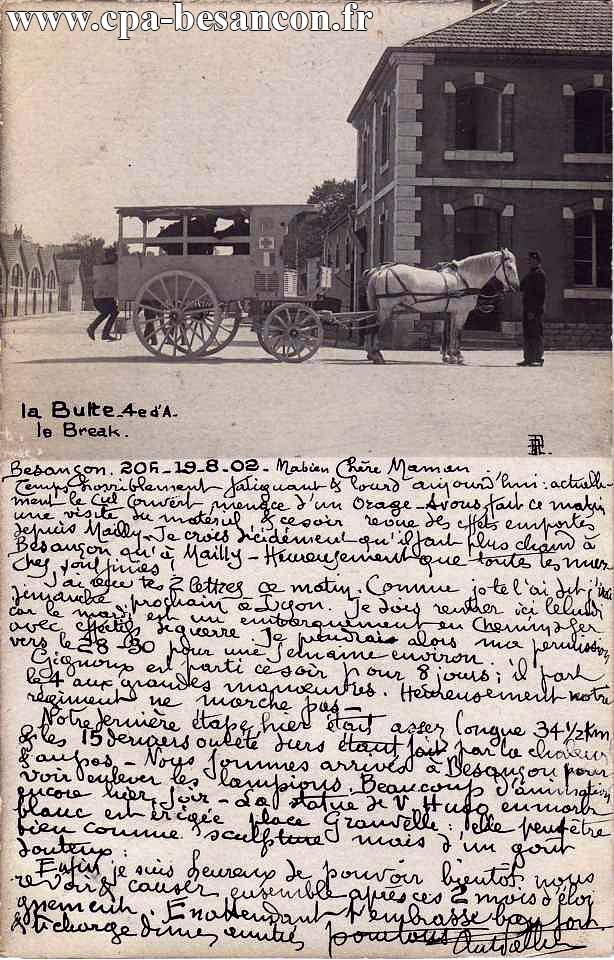 www.cpa-besancon.fr
la Butte - 4e d'A -
le Break.
Besançon. 20h - 19-8-02 - Ma bien Chère Maman
Temps horriblement fatiguant & lourd aujourd'hui : actuelle-
ment le ciel couvert menace d'un orage - avons fait ce matin
une visite du matériel & ce soir revue des effets emportés
depuis Mailly - Je crois décidément qu'il fait plus chaud à
Besançon qu'à Mailly - Heureusement que toute les
sont finies !
J'ai reçu tes 2 lettres ce matin. Comme je te l'ai dit j'irai
dimanche prochain à Lyon. Je dois rentrer ici le lundi
car le mardi est un embarquement en Chemin de fer
avec effectifs de guerre. Je prendrai alors ma permission
vers le 28-30 pour une semaine environ.
Gignoux est parti ce soir pour 8 jours ; il part
le 4 aux grandes manœuvres. Heureusement notre
régiment ne marche pas -
Notre dernière étape hier était assez longue 34 1/2 Km
& les 15 derniers ont été durs étant fait par la chaleur
& au pas - Nous sommes arrivés à Besançon pour
voir enlever les lampions. Beaucoup d'animation
encore hier soir - La statue de V. Hugo en marbre
blanc est érigée place Granvelle : elle peut être
bien comme sculpture mais d'un goût
douteux :
Enfin je suis heureux de pouvoir bientôt nous
revoir & causer ensemble après ces 2 mois d'éloi
gnement. En attendant t'embrasse bien fort
& te charge d'mes amitiés pour tous